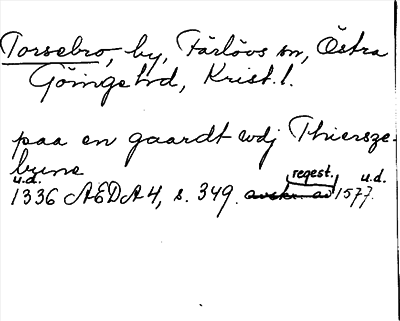 Torsebro, by, Färlövs sn, Östra
Göingehd, Krist. l.
paa en gaardt wdj Thiersze-
brune
u.d. regest. u.d.
1336 AEDA 4, s. 349. avskr. av 1577.